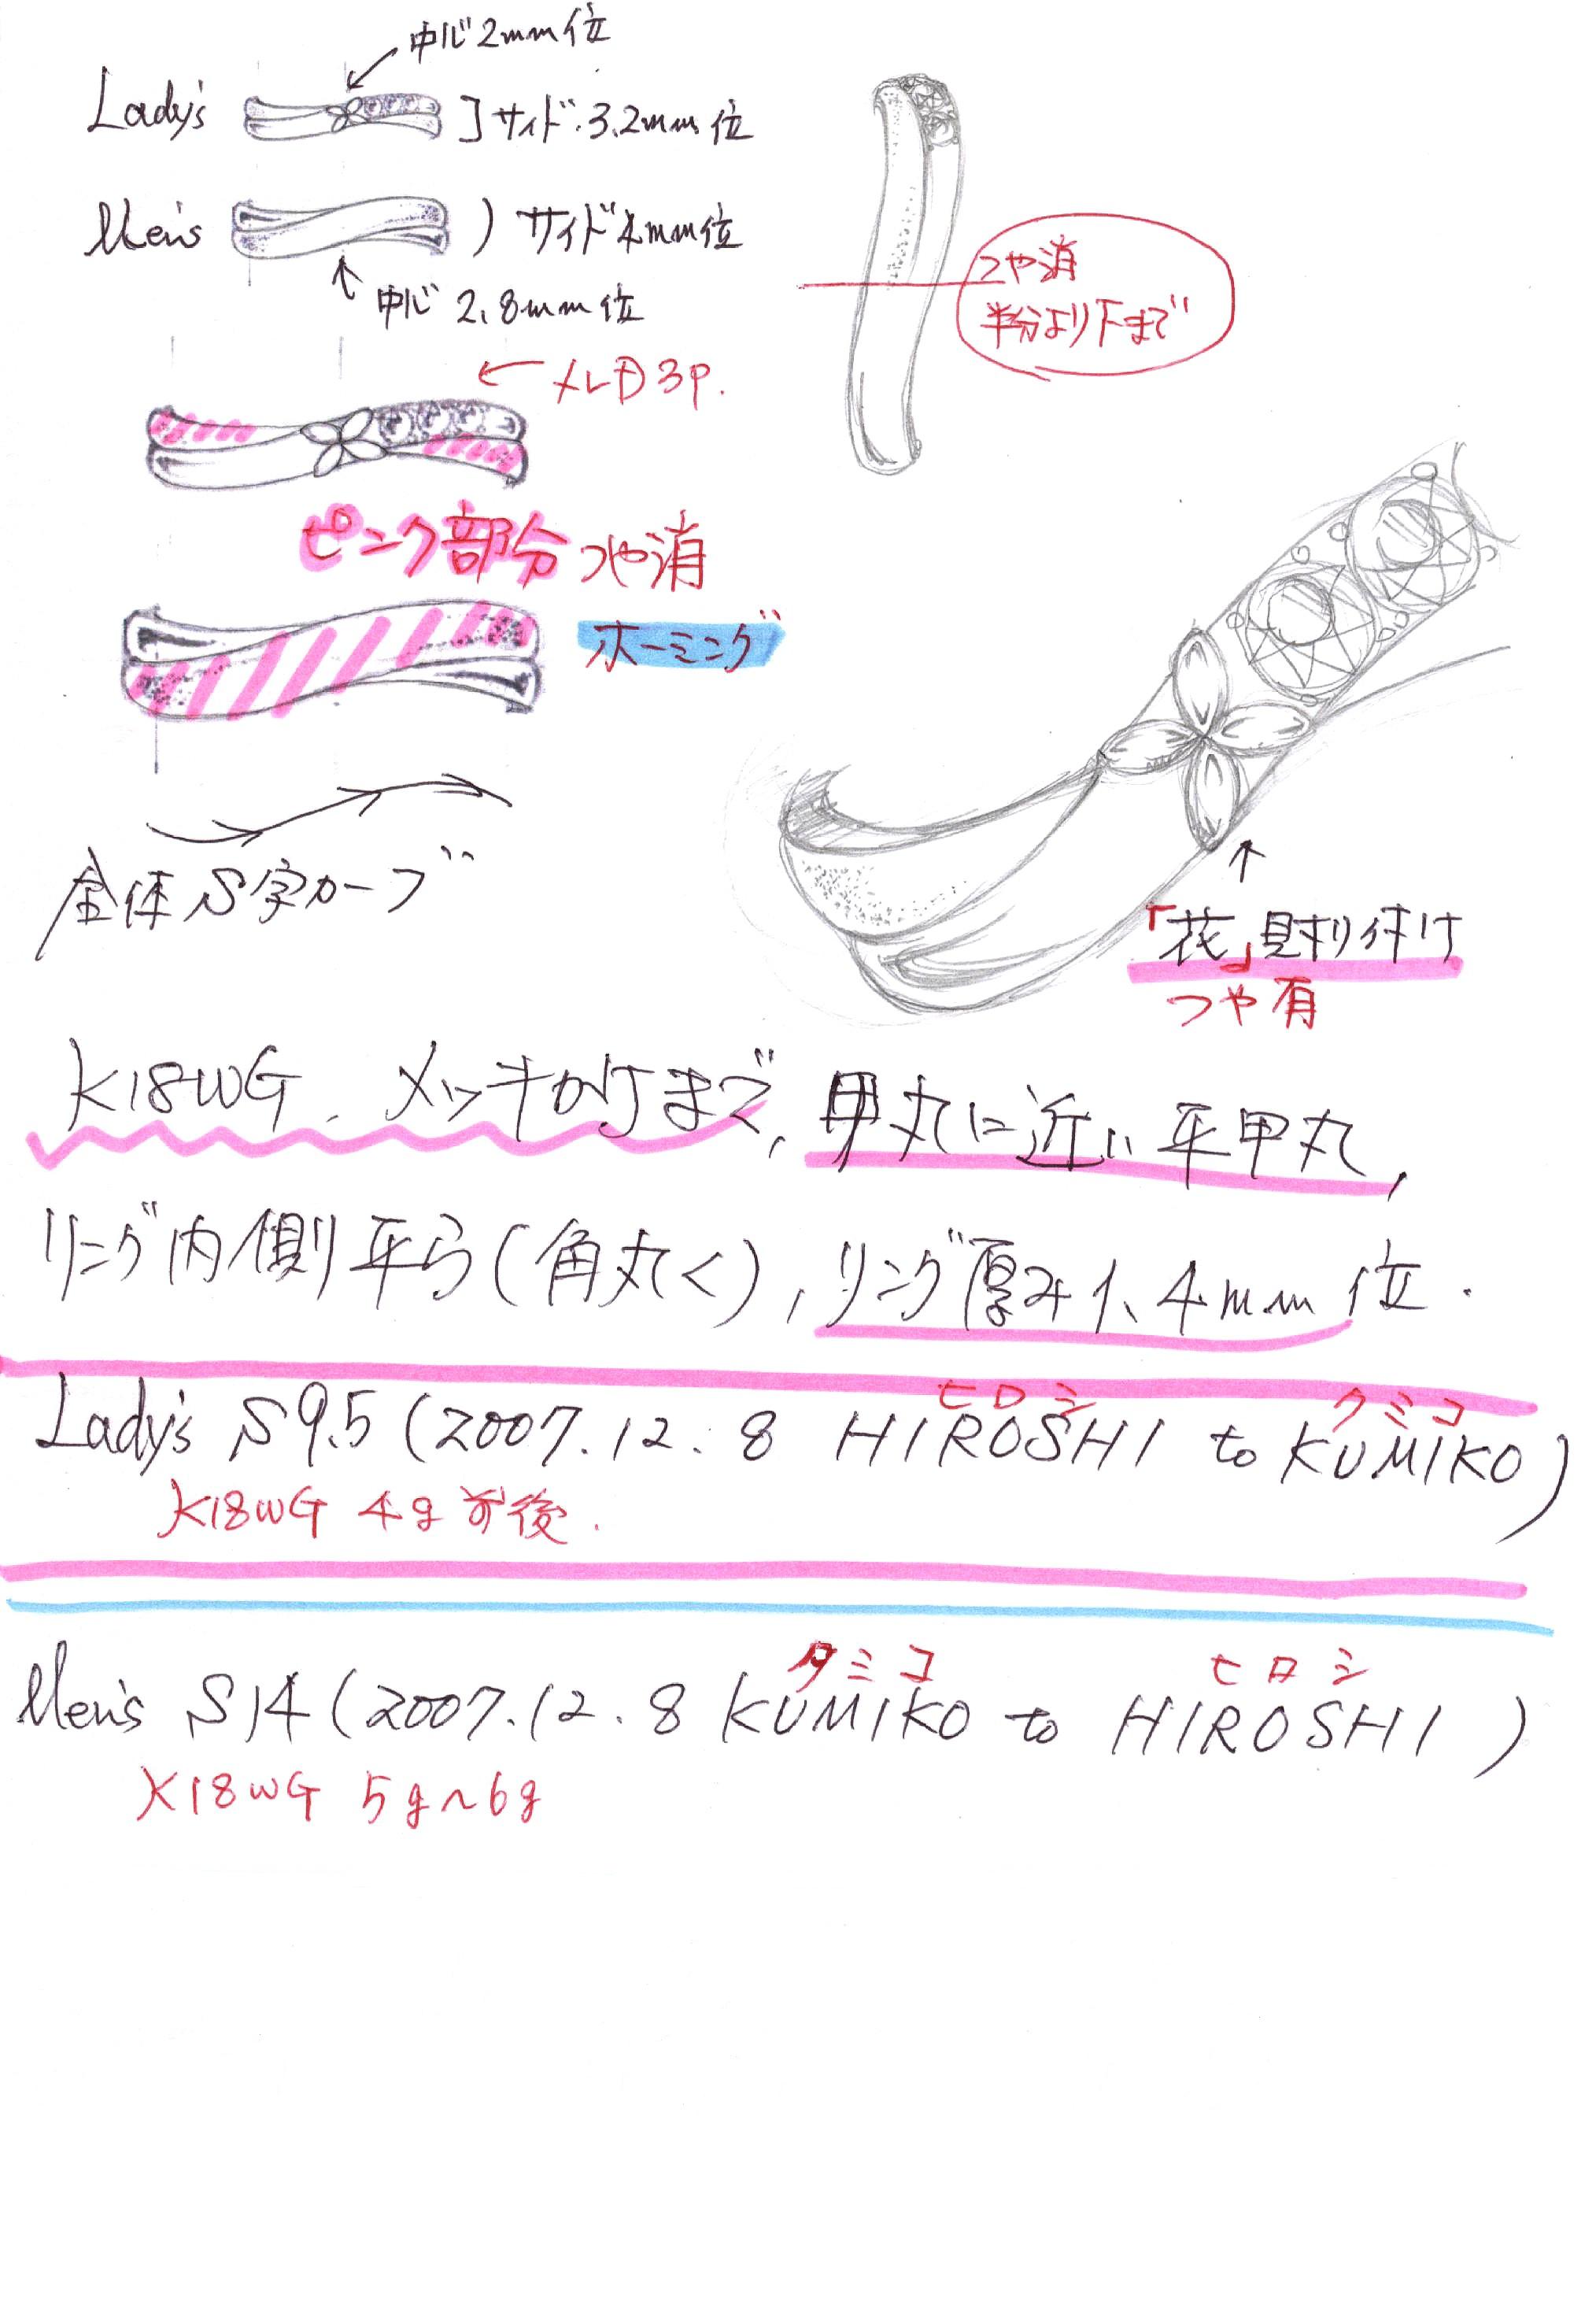 中心2mm位
Lady's
サイド.3.2mm位
Men's
サイド4mm位
中心 2.8mm位
つや消
半分より下まで
メレD3P.
ピンク部分 つや消
ホーミング
全体S字カーブ
「花」貼り付け
つや有
K18WG、メッキかけまで、甲丸に近い平甲丸、
リング内側平ら(角丸く)、リング厚み1.4mm位.
ヒロシ クミコ
Lady's S9.5 (2007.12.8 HIROSHI to KUMIKO)
K18WG 4g前後.
クミコ ヒロシ
Men's S14 (2007.12.8 KUMIKO to HIROSHI)
K18WG 5g~6g